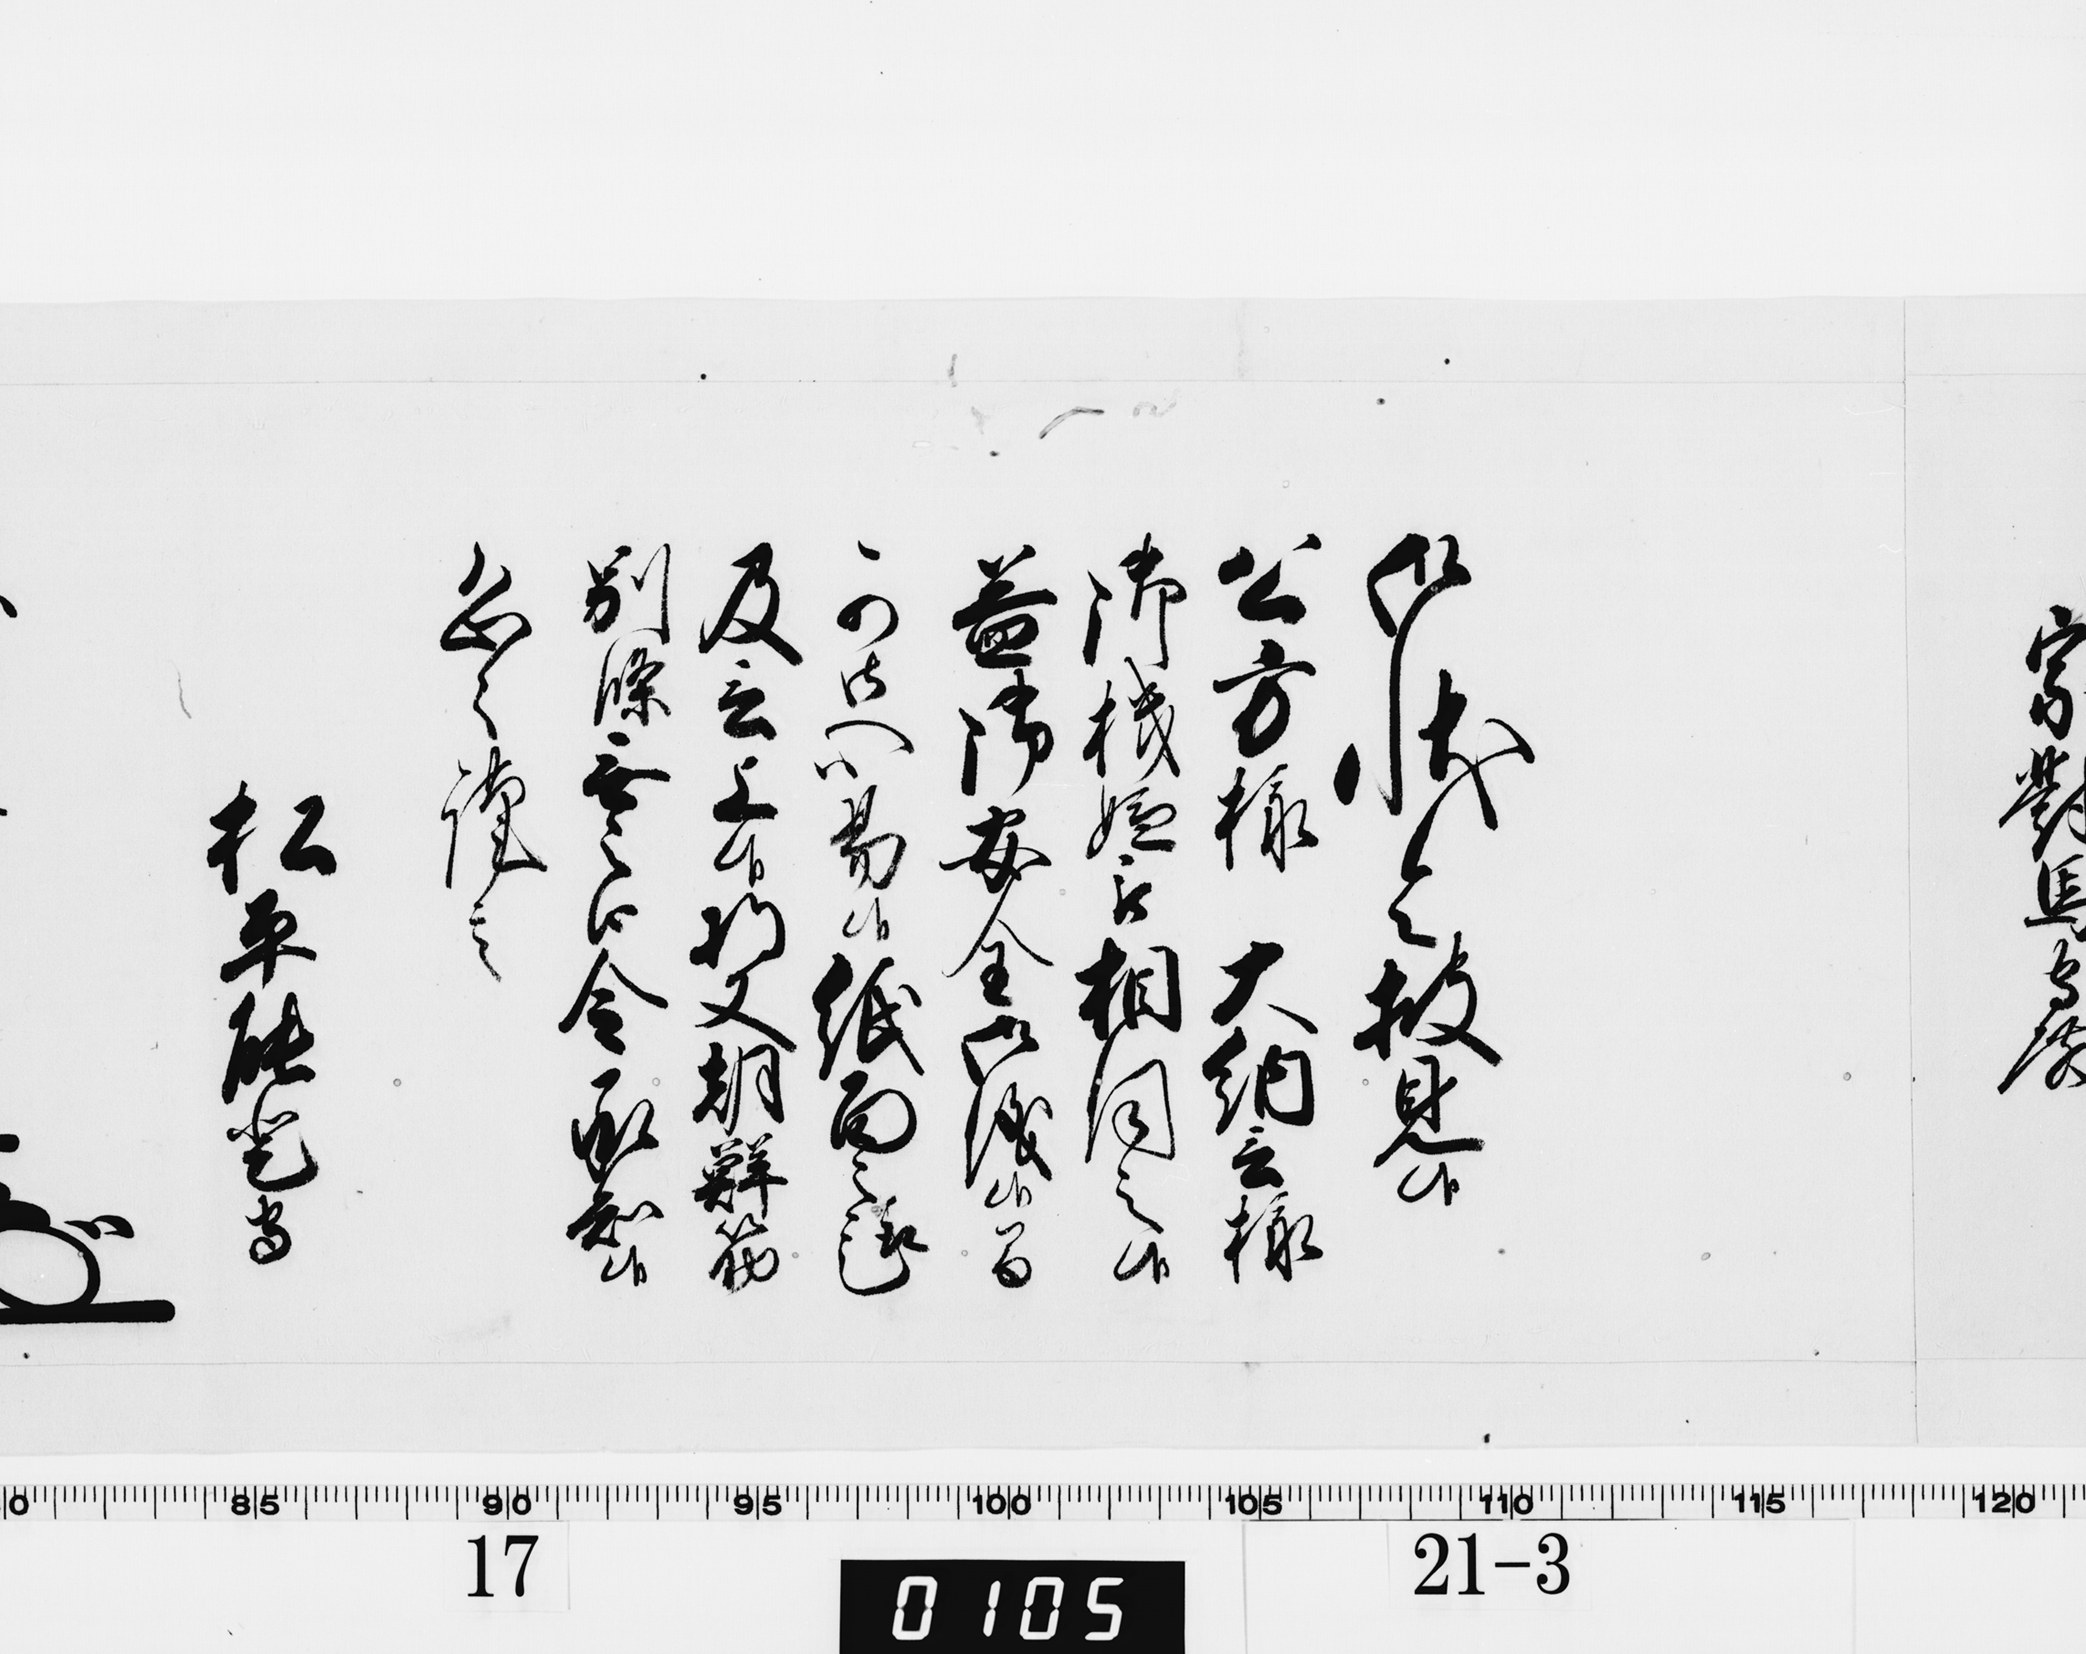 宗對馬守殿
御状令披見候
公方様 大納言様
御機嫌被相伺之候
益御安全御儀候間
可御心易候紙面之趣
及言上候將又朝鮮筋
別條無之由令承知候
恐々謹言
松平能登守
80 85 90 95 100 105 110 115 120
17
0105
21-3